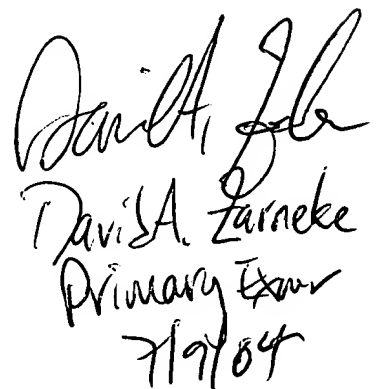 David A. Zarneke
Primary Exmr
7/9/04